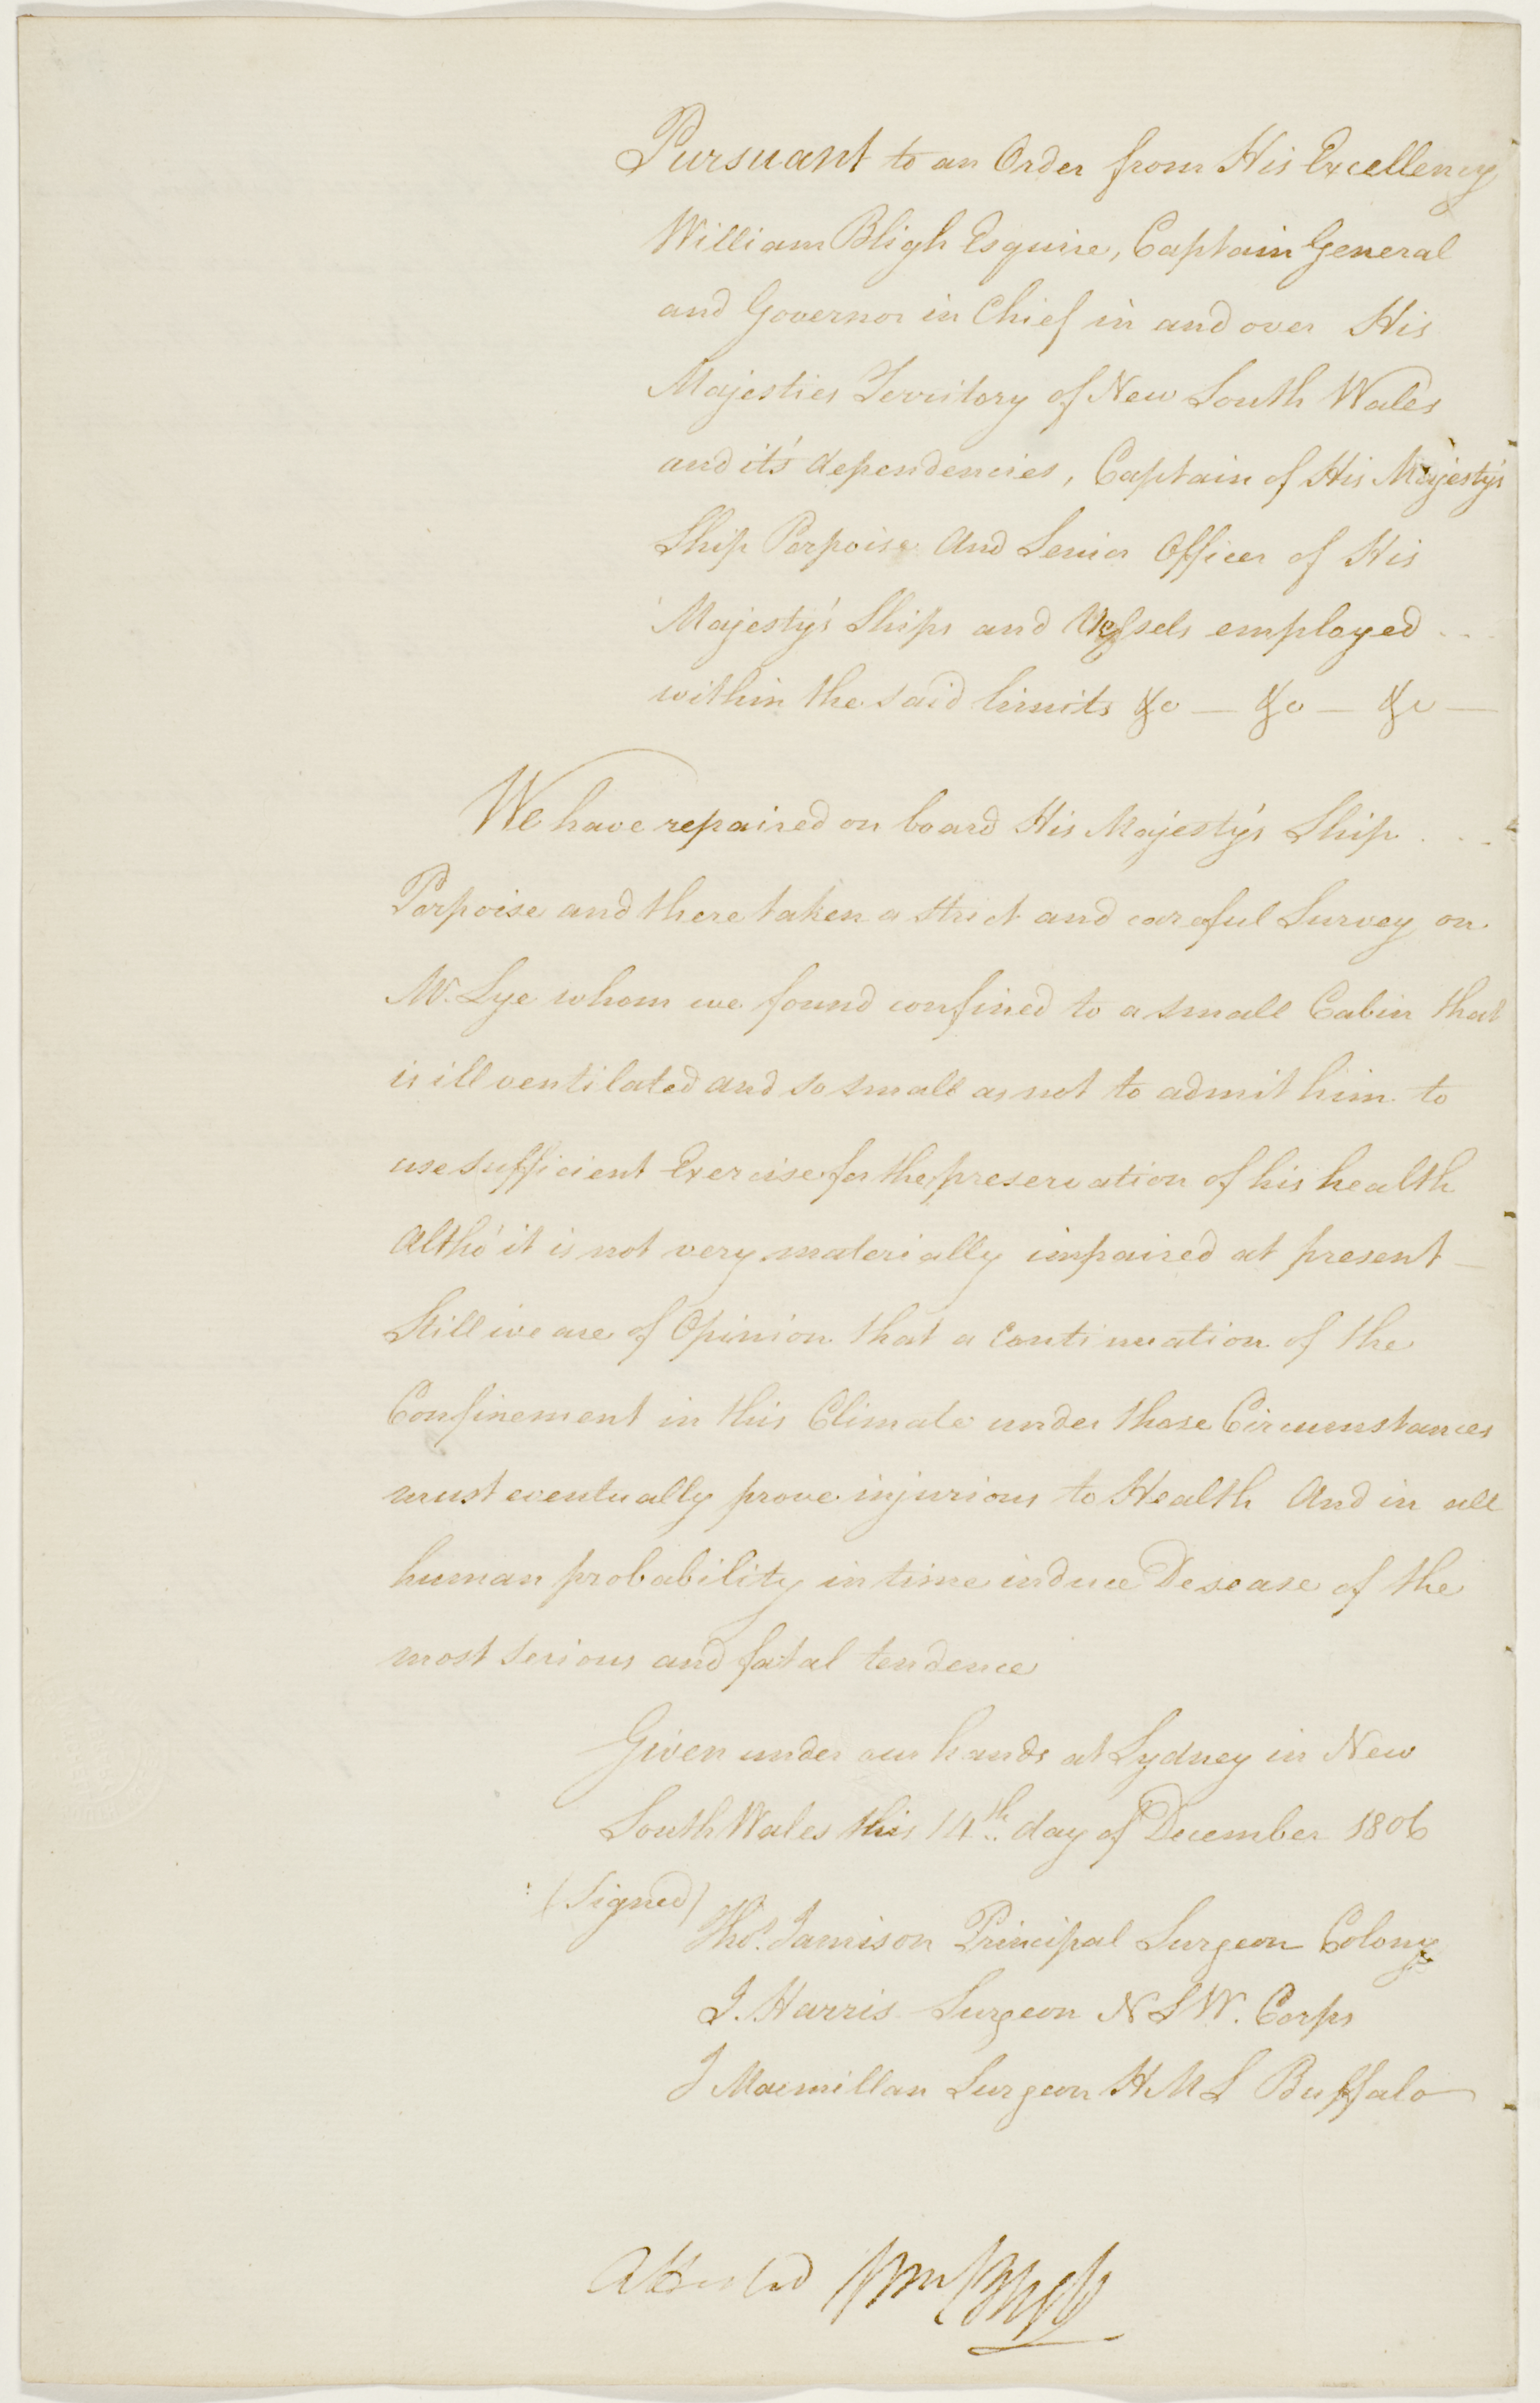 Pursuant to an Order from His Excellency
William Bligh Esquire, Captain General
and Governor in Chief in and over His
Majesties Territory of New South Wales
and it's dependencies, Captain of His Majesty's
Ship Porpoise And Senior Officer of His
Majesty's Ships and Vessels employed ...
within the said limits &c — &c — &c —
We have repaired on board His Majesty's Ship ...
Porpoise and there taken a strict and careful Survey on
Mr. Lye whom we found confined to a small Cabin that
is ill ventilated and so small as not to admit him to
use sufficient Exercise for the preservation of his health
Altho' it is not very materially impaired at present —
Still we are of Opinion that a continuation of the
Confinement in this Climate under those Circumstances
must eventually prove injurious to Health And in all
human probability in time induce Desease of the
most serious and fatal tendence
Given under our hands at Sydney in New
South Wales this 14th day of December 1806
(Signed)
Thos. Jamison Principal Surgeon Colony
J. Harris Surgeon N S W. Corps
J Macmillan Surgeon H M S Buffalo
Attested Wm Bligh